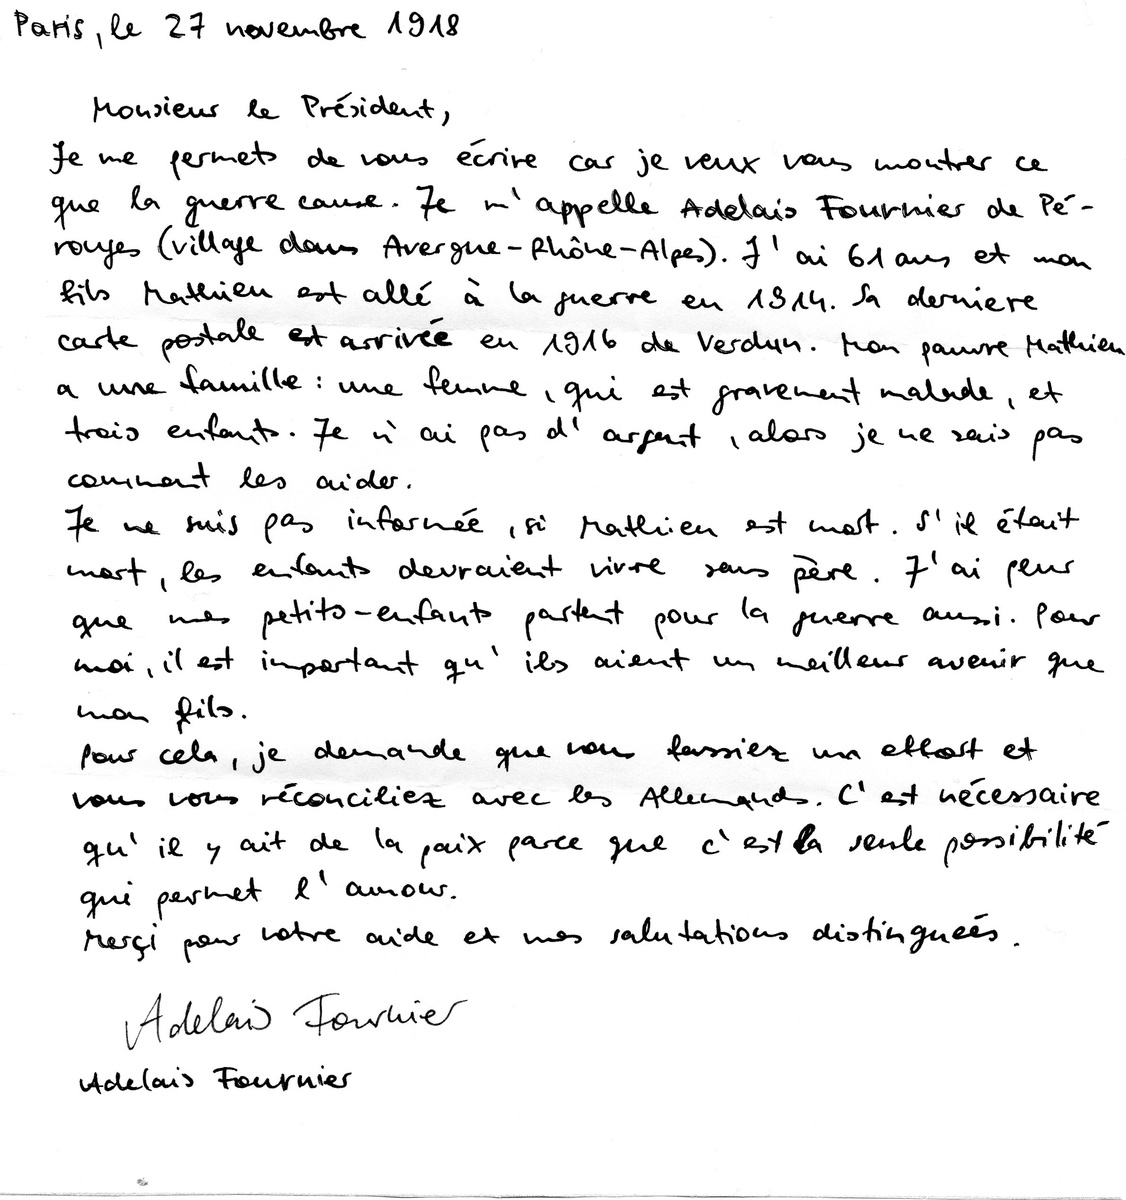 Paris, le 27 novembre 1918
Monsieur le Président,
Je me permets de vous écrire car je veux vous montrer ce
que la guerre cause. Je m'appelle Adelais Fournier de Pé-
rouges (village dans Avergne-Rhône-Alpes). J'ai 61 ans et mon
fils Mathieu est allé à la guerre en 1914. Sa derniere
carte postale est arrivée en 1916 de Verdun. Mon pauvre Mathieu
a une famille : une femme, qui est gravement malade, et
trois enfants. Je n'ai pas d'argent, alors je ne sais pas
comment les aider.
Je ne suis pas informée, si Mathieu est mort. S'il était
mort, les enfants devraient vivre sans père. J'ai peur
que mes petits-enfants partent pour la guerre aussi. Pour
moi, il est important qu'ils aient un meilleur avenir que
mon fils.
Pour cela, je demande que vous fassiez un effort et
vous vous réconciliez avec les Allemands. C'est nécessaire
qu'il y ait de la paix parce que c'est la seule possibilité
qui permet l'amour.
Merçi pour votre aide et mes salutations distinguées.
Adelais Fournier
Adelais Fournier